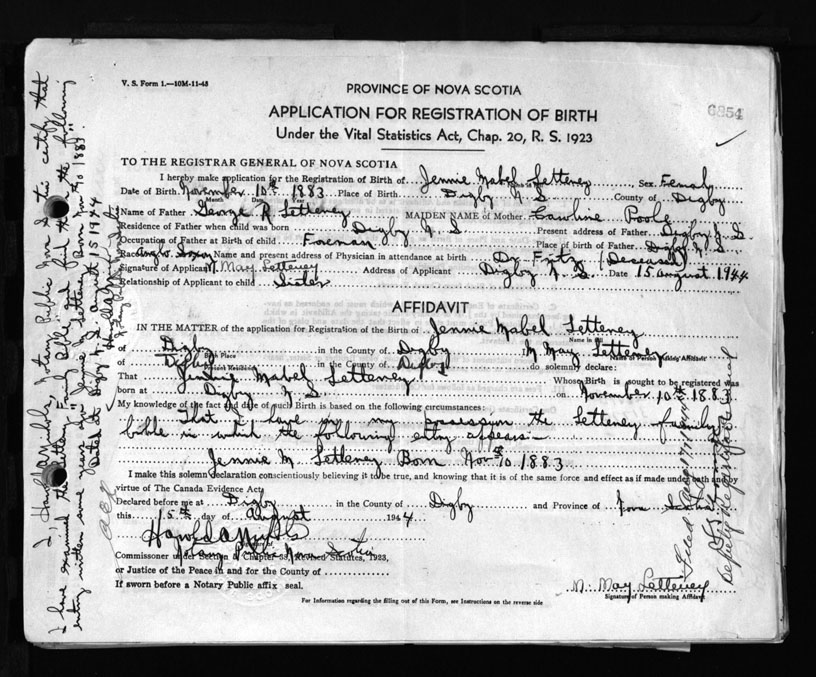 V. S. Form 1.—10M-11-43
6854
PROVINCE OF NOVA SCOTIA
APPLICATION FOR REGISTRATION OF BIRTH
Under the Vital Statistics Act, Chap. 20, R. S. 1923
TO THE REGISTRAR GENERAL OF NOVA SCOTIA
I hereby make application for the Registration of Birth of Jennie Mabel Letteney Sex Female
Date of Birth November 10th 1883 Place of Birth Digby N S County of Digby
Month Date Year
Name of Father George R Letteney MAIDEN NAME of Mother Caroline Poole
Residence of Father when child was born Digby N S Present address of Father Digby N. S.
Occupation of Father at Birth of child Foreman Place of birth of Father Digby N. S.
Race Anglo Saxon Name and present address of Physician in attendance at birth Dr Fritz (Deceased)
Signature of Applicant N. May Letteney Address of Applicant Digby N. S. Date 15 August 1944
Relationship of Applicant to child Sister
AFFIDAVIT
IN THE MATTER of the application for Registration of the Birth of Jennie Mabel Letteney
Name in full
of Digby in the County of Digby N May Letteney
Birth Place Name of Person Making Affidavit
of Digby in the County of Digby do solemnly declare:
Present Residence
That Jennie Mabel Letteney Whose Birth is sought to be registered was
born at Digby N. S. on November 10th 1883
My knowledge of the fact and date of such Birth is based on the following circumstances:
That I have in my possession the Letteney family
bible in which the following entry appears—
Jennie M. Letteney Born Nov 10 1883
I make this solemn declaration conscientiously believing it to be true, and knowing that it is of the same force and effect as if made under oath and by
virtue of The Canada Evidence Act.
Declared before me at Digby in the County of Digby and Province of Nova Scotia
this 15th day of August 1944
Notary Public Nova Scotia
Commissioner under Section Chapter 38, Revised Statutes, 1923,
or Justice of the Peace in and for the County of
If sworn before a Notary Public affix seal.
N. May Letteney
Signature of Person making Affidavit
For Information regarding the filling out of this Form, see Instructions on the reverse side
I, Harold A Notary Public Nova Scotia certify that
I have examined the "Letteney Family Bible" and find the following
entry written some years ago "Jennie M Letteney Born Nov 10 1883."
Dated at Digby N. S. August 15 1944
Notary Public
Filed Aug 17, 1944
Deputy Registrar General